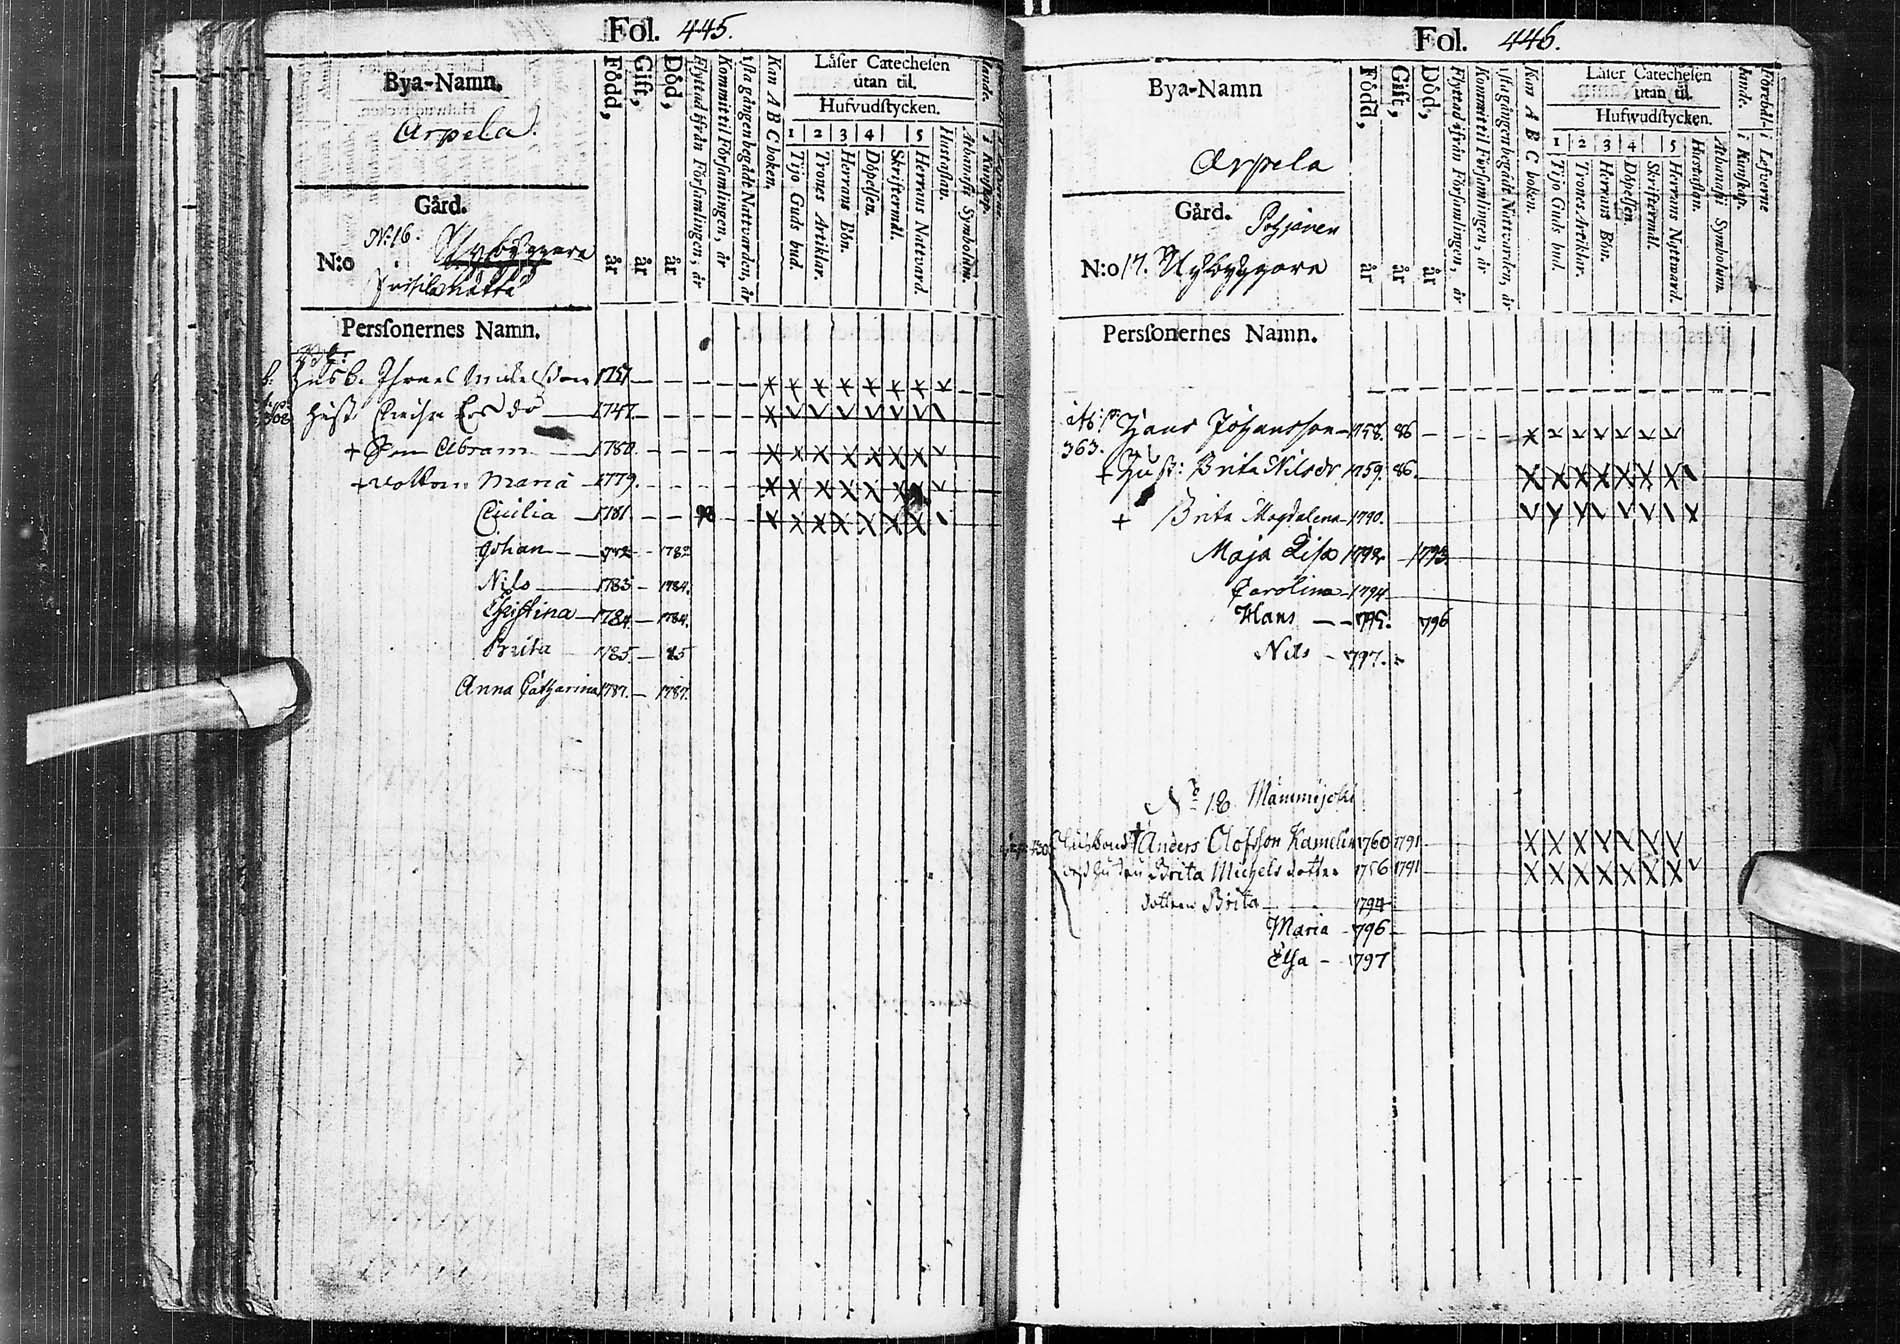 Fol. 445.
Bya-Namn.
Arpela.
Gård.
No: 16. Nybyggare
N:o
Född, år
Gift, år
Död, år
Flyttad ifrån Församlingen, år
Kommit til Församlingen, år
1sta gången begådt Nattvarden, år
Kan A B C boken.
Låser Catechesen
utan til.
Hufvudstycken.
1 2 3 4 5
Tijo Guds bud.
Trones Artiklar.
Herrans Bön.
Döpelsen.
Skriftermål.
Herrans Nattvard.
Hustaflan.
Athanasii Symbolum.
i Kunskap.
Personernes Namn.
Husb. 1751
Hust. 1747.
+ Son Abram 1780.
+ Maria 1779.
Cicilia 1781. 98
Johan 1782 1782
Nils 1783 1784.
Christina 1784. 1784.
Brita 1785 85
Anna Catharina 1787. 1787.
Fol. 446.
Bya-Namn
Arpela
Gård. Pohjanen
N:o 17. Nybyggare
Född, år
Gift, år
Död, år
Flyttad ifrån Församlingen, år
Kommit til Församlingen, år
1sta gången begådt Nattvarden, år
Kan A B C boken.
Låser Catechesen
utan til.
Hufwudstycken.
1 2 3 4 5
Tijo Guds bud.
Trones Artiklar.
Herrans Bön.
Döpelsen.
Skriftermål.
Herrans Nattward.
Hustaflan.
Athanasii Symbolum.
i Kunskap.
i Lefverne
Personernes Namn.
Hans Johansson 1758. 86
363.
+ Hust: Brita Nilsdr 1759. 86.
+ Brita Magdalena 1790.
Maja Lisa 1792. 1793.
Carolina 1794
Hans 795. 796
Nils 797.
No 18 Mämmijoki
Husbond + Anders Olofsson Kamelin 1760 1791
Brita Michels dotter 1756 1791
dottren Brita 1794
Maria 796
Elsa 1797